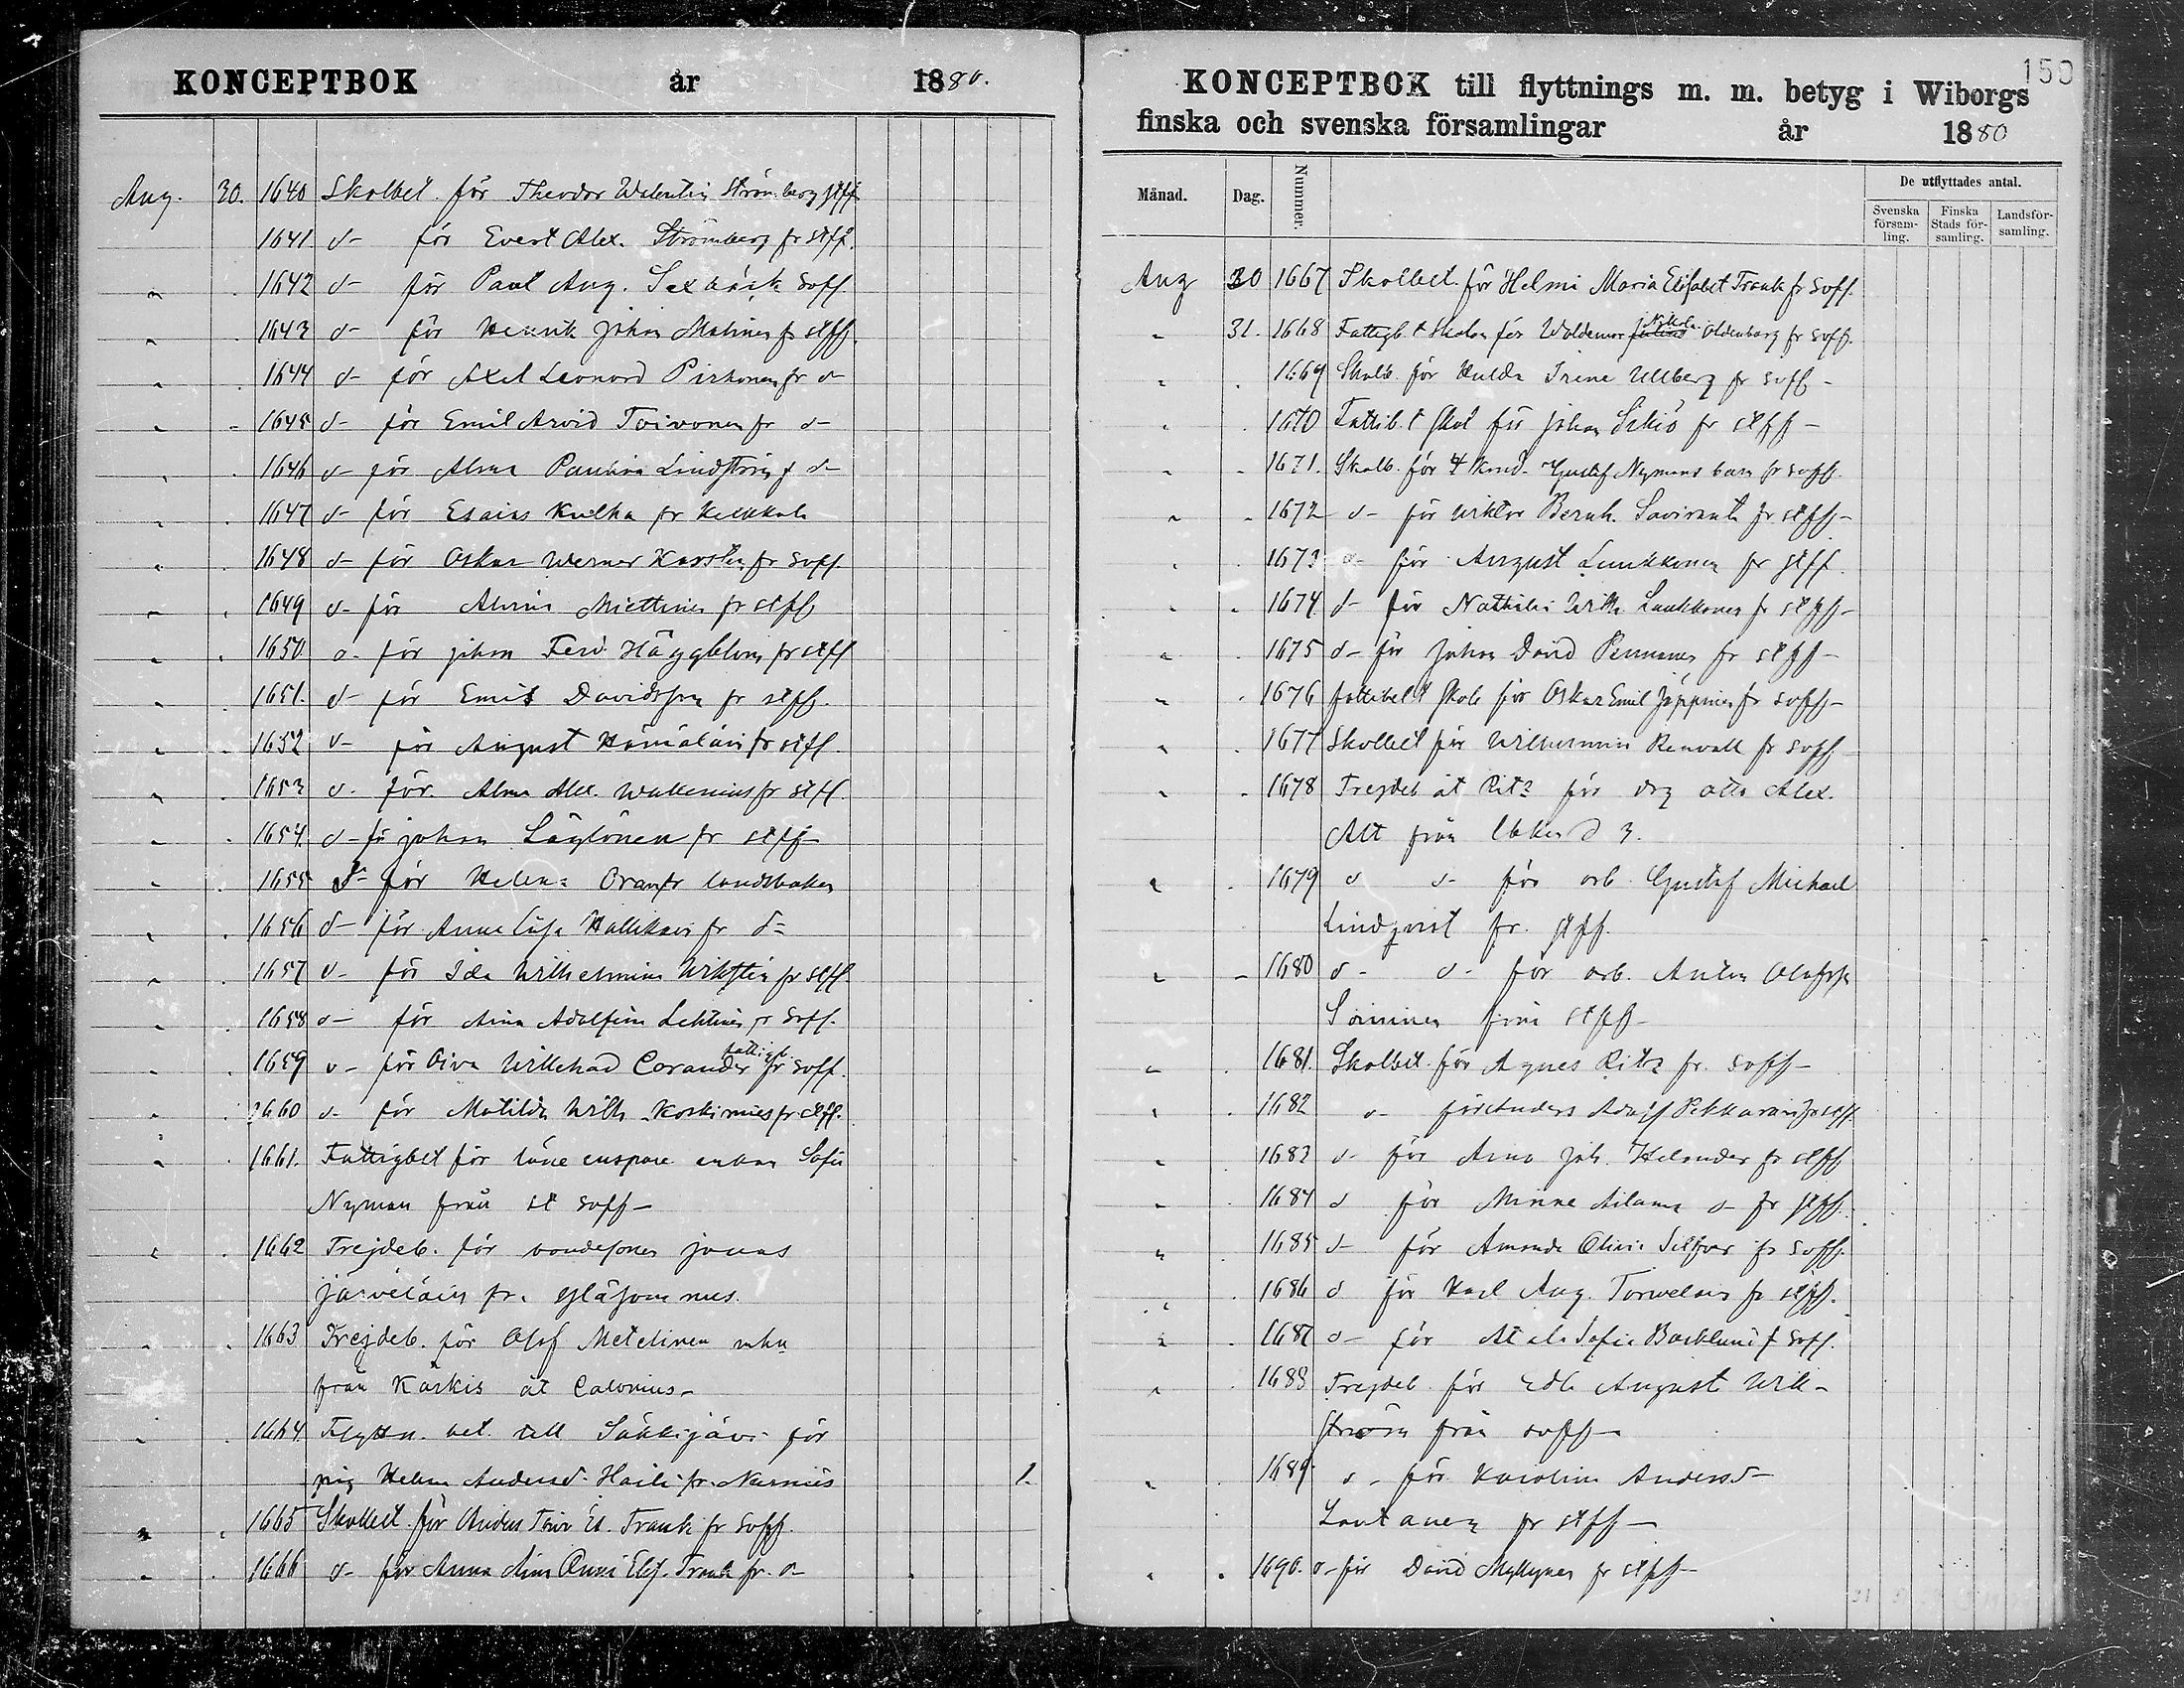 KONCEPTBOK år 1880.
Aug. 30. 1640 Skolbet. för Theodor Walentin Strömberg stff
1641. d- för Evert Alex. Strömberg fr stff.
" . 1642 d- för Paul Aug. Sexbäck Soff.
" . 1643 d- för Henrik Johan Malinen fr stff.
" . 1644 d- för Axel Leonard Pirhonen fr d-
" - 1645 d- för Emil Arvid Toivonen fr d-
" . 1646 d- för Alma Paulina Lindström f d-
" . 1647 d- för Esaias Kulha fr
" . 1648 d- för Oskar Werner Karsten fr Soff.
" . 1649 d- för Miettinen fr stff
" . 1650 d- för Johan Ferd. Häggblom fr stff
" . 1651. d- för Emil Davidsson fr stff.
" . 1652 d- för August Hämäläin fr stff.
" . 1653 d. för Alma Alex. Wallenius fr stff.
" . 1654. d- fr Johan Läylönen fr stff
" . 1655 d- för Helena Oran fr landsbaken
" . 1656 d- för Anna Lisa Hallikain fr d-
" . 1657 d- för Ida Wilhelmina Wikstén fr stff.
" . 1658 d- för Aina Adolfina Lehtinen fr Soff.
" . 1659 d- för Oiva Willehad Corander fattigb. fr Soff.
" . 1660 d- för Matilda Wilh. Koskimies fr stff.
" . 1661. Fattigbet för enkan Sofia
Nyman från st Soff-
" . 1662 Frejdeb. för bondesonen Jonas
Järveläin fr.
" . 1663 Frejdeb. för Olof Metelinen
från Kärkis åt Calonius-
" . 1664. Flyttn. bet. till Säkkijärvi för
pig Helena Andersd. Haili fr. Nurmis 1.
" . 1665 Skolbet. för Anders Toiv. El. Trank fr Soff.
" . 1666 d- för Anna Elis. Trank fr. d-
150
KONCEPTBOK till flyttnings m. m. betyg i Wiborgs
finska och svenska församlingar år 1880
Månad. Dag. Nummer. De utflyttades antal.
Svenska försam-ling. Finska Stads för-samling. Landsför-samling.
Aug 30 1667 Skolbet. för Helmi Maria Elisabet Trank fr Soff.
" 31. 1668 Fattigb. & skolb för Woldemar Nikola. Oldenburg fr Soff.
" . 1669 Skolb. för Hulda Irene Ullberg fr Soff-
" . 1670 Fattib. & skol för Johan Sikiö fr stff-
" . 1671. Skolb. för 4 Kond. Gustaf Nymans barn fr Soff.
" . 1672 d- för Wiktor Bernh. Savirant fr stff-
" . 1673 d- för August Luukkonen fr stff.
" . 1674 d- för Wilh. Luukkonen fr stff-
" . 1675 d- för Johan David Pennanen fr stff-
" . 1676 fattibet & skolb för Oskar Emil Jäppinen fr Soff-
" . 1677 Skolbet för Wilhelmina Renvall fr Soff-
" . 1678 Frejdeb åt Ritz för drg Otto Alex.
Alt från
" . 1679 d d- för arb. Gustaf Michael
Lindqvist fr. stff.
" - 1680 d- d- för arb. Anton Olofss
Soininen från stff-
" . 1681. Skolbet. för Agnes Ritz fr. Soff-
" . 1682 d- för Anders Adolf Pekkarain fr stff.
" . 1683 d- för Arno Joh. Helander fr stff
" . 1684 d för Minna d- fr stff.
" . 1685 d- för Amanda Olivia Silfver fr Soff.
" . 1686 d för Karl Aug. Torvelain fr stff.
" . 1687 d- för Sofia Backlund f Soff.
" . 1688 Frejdeb. för August Wik-
ström från Soff-
" . 1689 d- för Karolina Andersd-
Lautanen fr stff-
" . 1690. d- för David Myllynen fr stff-